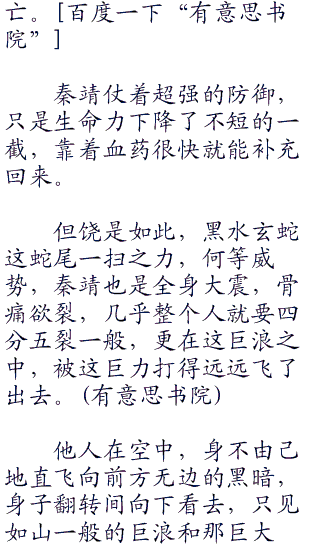 亡。[百度一下“有意思书
院”]
秦靖仗着超强的防御，
只是生命力下降了不短的一
截，靠着血药很快就能补充
回来。
但饶是如此，黑水玄蛇
这蛇尾一扫之力，何等威
势，秦靖也是全身大震，骨
痛欲裂，几乎整个人就要四
分五裂一般，更在这巨浪之
中，被这巨力打得远远飞了
出去。(有意思书院)
他人在空中，身不由己
地直飞向前方无边的黑暗，
身子翻转间向下看去，只见
如山一般的巨浪和那巨大